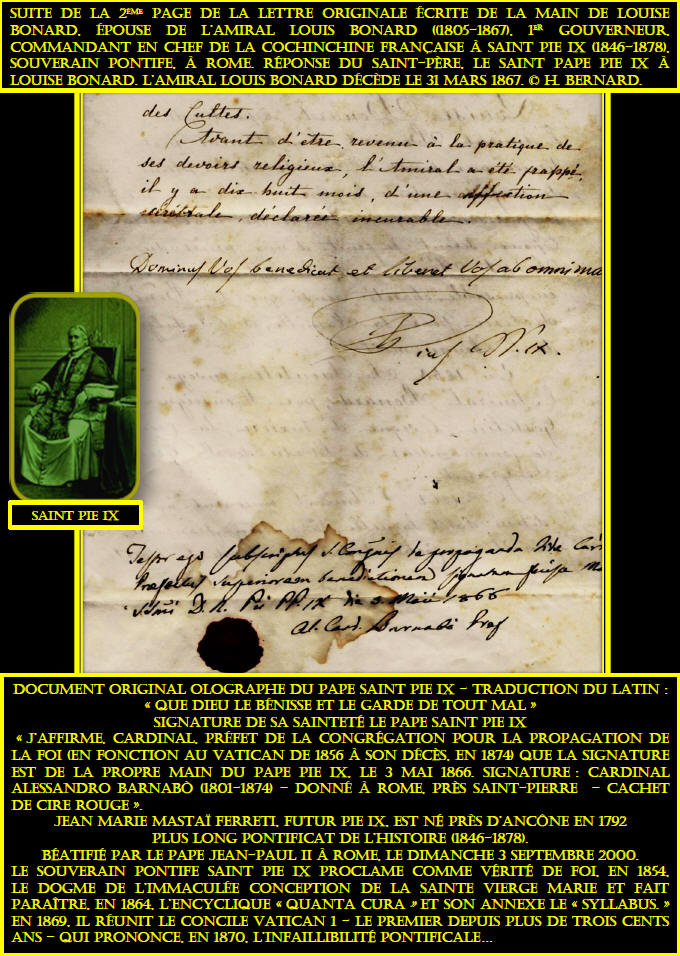 SUITE DE LA 2ÈME PAGE DE LA LETTRE ORIGINALE ÉCRITE DE LA MAIN DE LOUISE
BONARD, ÉPOUSE DE L'AMIRAL LOUIS BONARD ((1805-1867), 1ER GOUVERNEUR,
COMMANDANT EN CHEF DE LA COCHINCHINE FRANÇAISE À SAINT PIE IX (1846-1878),
SOUVERAIN PONTIFE, À ROME. RÉPONSE DU SAINT-PÈRE, LE SAINT PAPE PIE IX À
LOUISE BONARD. L'AMIRAL LOUIS BONARD DÉCÈDE LE 31 MARS 1867. © H. BERNARD.
des Cultes.
Avant d'être revenu à la pratique de
ses devoirs religieux, l'Amiral a été frappé,
il y a dix huit mois, d'une affection
cérébrale, déclarée incurable.
Dominus Vos benedicat et liberet Vos ab omni ma
Pius PP. IX.
SAINT PIE IX
Testor ego subscriptus S. Congnis de propaganda Fide Car
Praefectus superiorem benedictionem signatam fuisse
D. N. Pii PP. IX die 3 Maii 1866
Al. Card. Barnabò Praef
DOCUMENT ORIGINAL OLOGRAPHE DU PAPE SAINT PIE IX – TRADUCTION DU LATIN :
« QUE DIEU LE BÉNISSE ET LE GARDE DE TOUT MAL »
SIGNATURE DE SA SAINTETÉ LE PAPE SAINT PIE IX
« J'AFFIRME, CARDINAL, PRÉFET DE LA CONGRÉGATION POUR LA PROPAGATION DE
LA FOI (EN FONCTION AU VATICAN DE 1856 À SON DÉCÈS, EN 1874) QUE LA SIGNATURE
EST DE LA PROPRE MAIN DU PAPE PIE IX, LE 3 MAI 1866. SIGNATURE : CARDINAL
ALESSANDRO BARNABÒ (1801-1874) – DONNÉ À ROME, PRÈS SAINT-PIERRE – CACHET
DE CIRE ROUGE ».
JEAN MARIE MASTAÏ FERRETI, FUTUR PIE IX, EST NÉ PRÈS D'ANCÔNE EN 1792
PLUS LONG PONTIFICAT DE L'HISTOIRE (1846-1878).
BÉATIFIÉ PAR LE PAPE JEAN-PAUL II À ROME, LE DIMANCHE 3 SEPTEMBRE 2000.
LE SOUVERAIN PONTIFE SAINT PIE IX PROCLAME COMME VÉRITÉ DE FOI, EN 1854,
LE DOGME DE L'IMMACULÉE CONCEPTION DE LA SAINTE VIERGE MARIE ET FAIT
PARAÎTRE, EN 1864, L'ENCYCLIQUE « QUANTA CURA » ET SON ANNEXE LE « SYLLABUS. »
EN 1869, IL RÉUNIT LE CONCILE VATICAN 1 – LE PREMIER DEPUIS PLUS DE TROIS CENTS
ANS – QUI PRONONCE, EN 1870, L'INFAILLIBILITÉ PONTIFICALE...